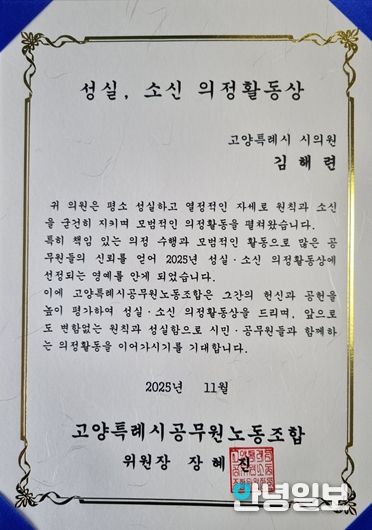 성실, 소신 의정활동상
고양특례시 시의원
김 해 련
귀 의원은 평소 성실하고 열정적인 자세로 원칙과 소신
을 굳건히 지키며 모범적인 의정활동을 펼쳐왔습니다.
특히 책임 있는 의정 수행과 모범적인 활동으로 많은 공
무원들의 신뢰를 얻어 2025년 성실·소신 의정활동상에
선정되는 영예를 안게 되었습니다.
이에 고양특례시공무원노동조합은 그간의 헌신과 공헌을
높이 평가하여 성실·소신 의정활동상을 드리며, 앞으로
도 변함없는 원칙과 성실함으로 시민·공무원들과 함께하
는 의정활동을 이어가시기를 기대합니다.
2025년 11월
고양특례시공무원노동조합
위원장 장 혜 진
안녕일보